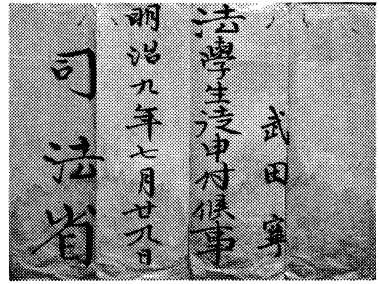 武田寧
法學生徒申付候事
明治九年七月廿九日
司法省